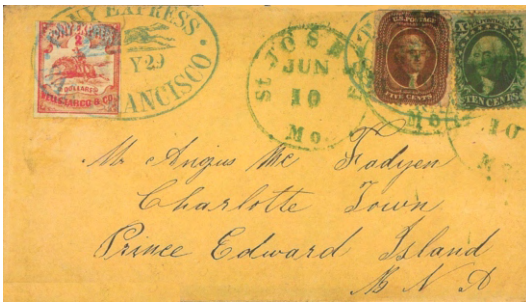 PONY EXPRESS
Y 29
SAN FRANCISCO
PONY EXPRESS
2
DOLLARS
WELLS, FARGO & CO
St. JOSEPH
JUN
10
Mo.
U.S. POSTAGE
FIVE CENTS
TEN CENTS
Mo.
10
Mo.
Mr Angus Mc Fadyen
Charlotte Town
Prince Edward Island
B N A